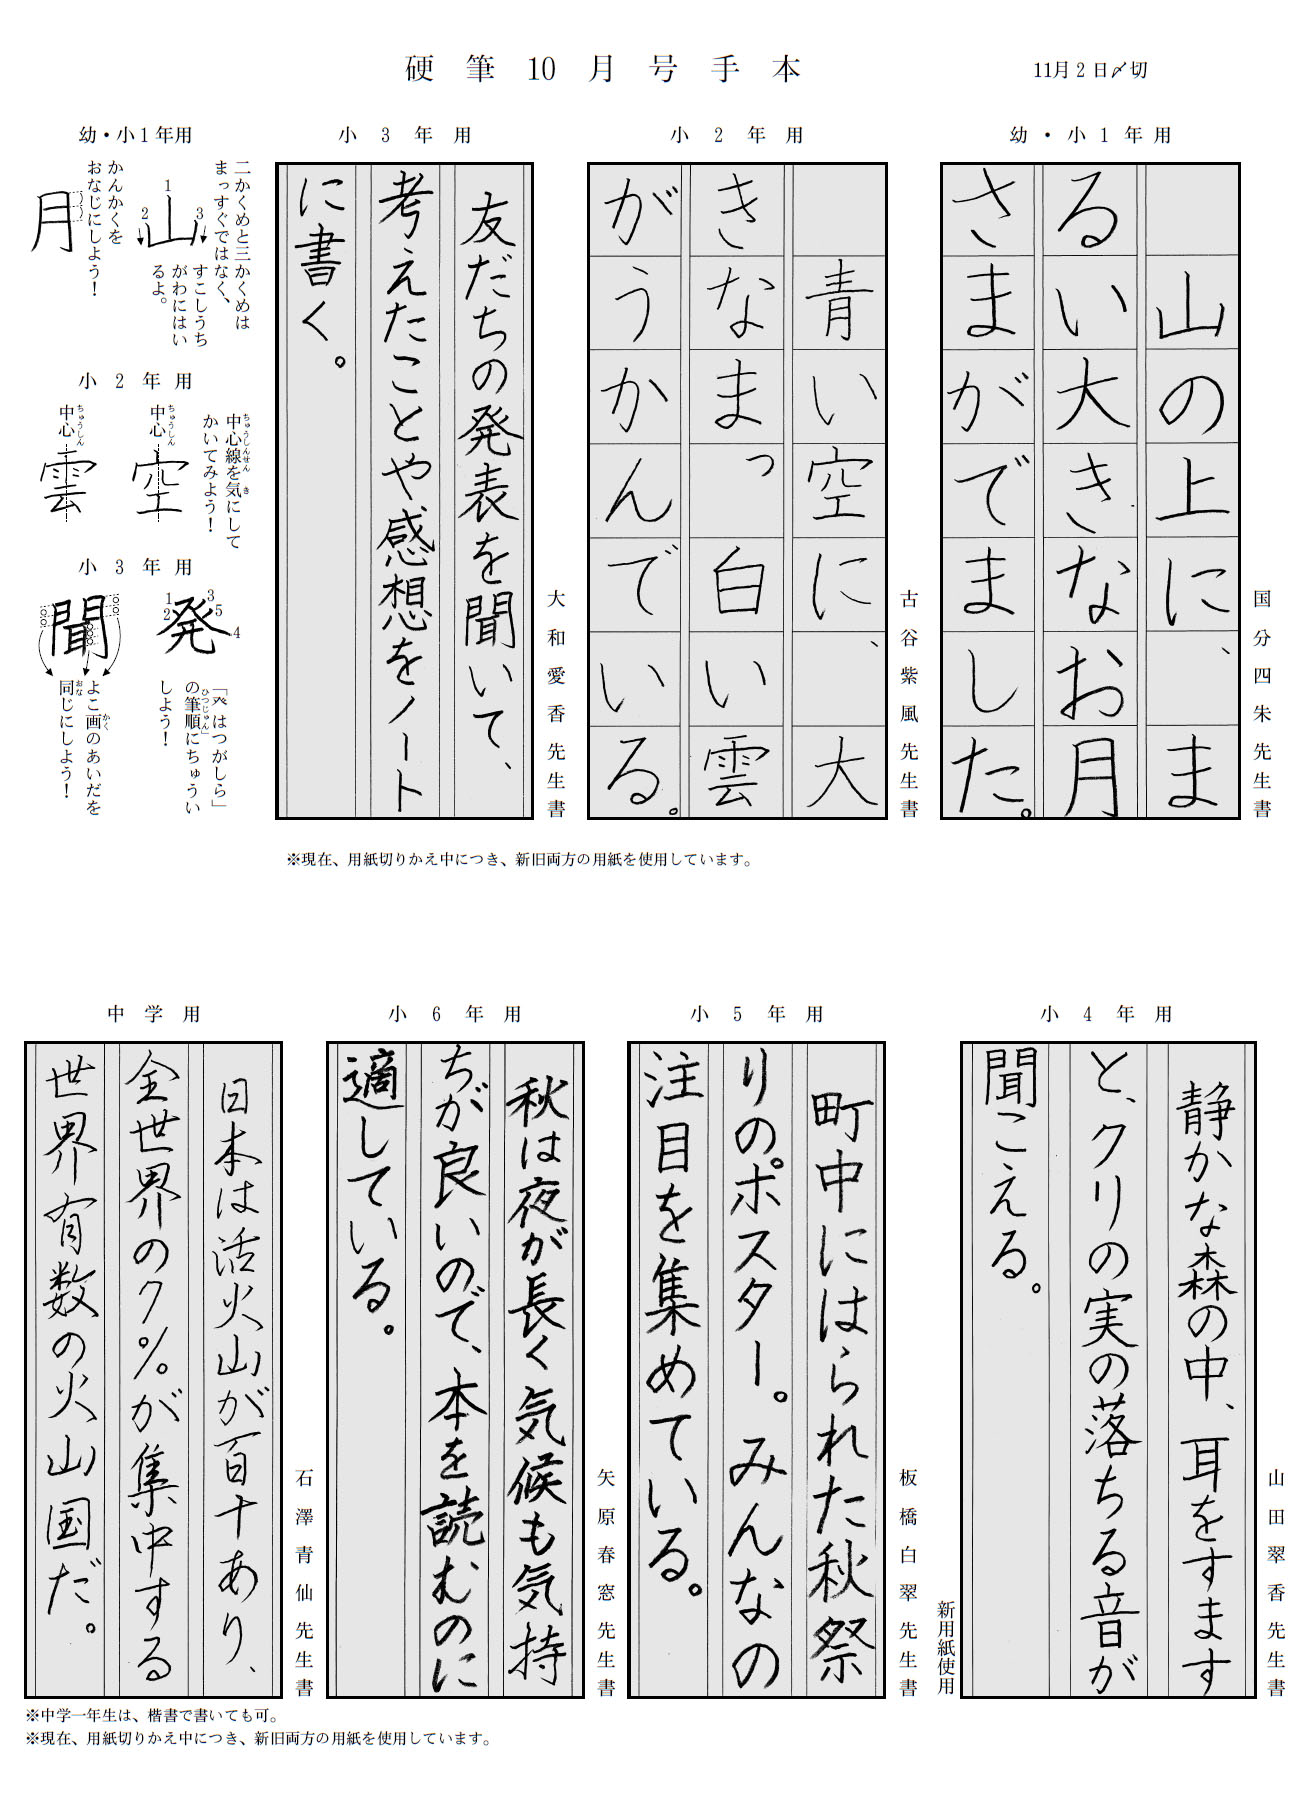 硬筆10月号手本
11月2日〆切
幼・小1年用
山の上に、ま
るい大きなお月
さまがでました。
国分四朱先生書
小2年用
青い空に、大
きなまっ白い雲
がうかんでいる。
古谷紫風先生書
小3年用
友だちの発表を聞いて、
考えたことや感想をノート
に書く。
大和愛香先生書
※現在、用紙切りかえ中につき、新旧両方の用紙を使用しています。
幼・小1年用
二かくめと三かくめは
まっすぐではなく、
すこしうち
がわにはい
るよ。
1
2
3
山
かんかくを
おなじにしよう！
月
小2年用
中心線を気にして
ちゅうしんせん
き
かいてみよう！
中心
ちゅうしん
空
中心
ちゅうしん
雲
小3年用
1
2
3
5
4
発
「癶はつがしら」
の筆順にちゅうい
ひつじゅん
しよう！
聞
よこ画のあいだを
かく
同じにしよう！
おな
小4年用
静かな森の中、耳をすます
と、クリの実の落ちる音が
聞こえる。
山田翠香先生書
新用紙使用
小5年用
町中にはられた秋祭
りのポスター。みんなの
注目を集めている。
板橋白翠先生書
小6年用
秋は夜が長く気候も気持
ちが良いので、本を読むのに
適している。
矢原春窓先生書
中学用
日本は活火山が百十あり、
全世界の7％が集中する
世界有数の火山国だ。
石澤青仙先生書
※中学一年生は、楷書で書いても可。
※現在、用紙切りかえ中につき、新旧両方の用紙を使用しています。